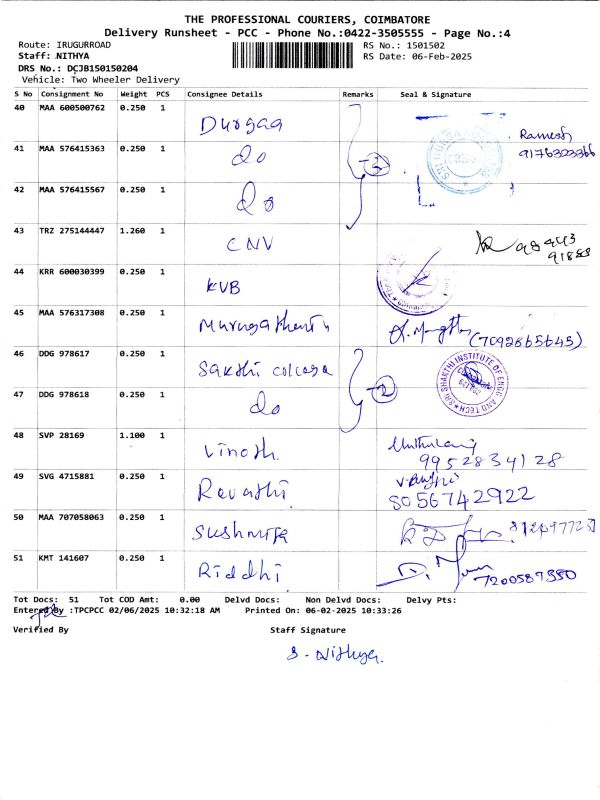 THE PROFESSIONAL COURIERS, COIMBATORE
Delivery Runsheet - PCC - Phone No.:0422-3505555 - Page No.:4
Route: IRUGURROAD RS No.: 1501502
Staff: NITHYA RS Date: 06-Feb-2025
DRS No.: DCJB150150204
Vehicle: Two Wheeler Delivery
S No Consignment No Weight PCS Consignee Details Remarks Seal & Signature
40 MAA 600500762 0.250 1 Durgaa
Ramesh
41 MAA 576415363 0.250 1 do 3
42 MAA 576415567 0.250 1 do
43 TRZ 275144447 1.260 1 CNV 98443
91888
44 KRR 600030399 0.250 1 KVB
45 MAA 576317308 0.250 1 (7092865645)
46 DDG 978617 0.250 1 Sakthi collage 2 SRI SHAKTHI INSTITUTE OF ENGG AND TECH
47 DDG 978618 0.250 1 do
48 SVP 28169 1.100 1 Vinoth.
9952834128
49 SVG 4715881 0.250 1 Revathi
8056742922
50 MAA 707058063 0.250 1 Sushmitha
51 KMT 141607 0.250 1 Riddhi
Tot Docs: 51 Tot COD Amt: 0.00 Delvd Docs: Non Delvd Docs: Delvy Pts:
Entered By :TPCPCC 02/06/2025 10:32:18 AM Printed On: 06-02-2025 10:33:26
Verified By Staff Signature
S. Nithya.